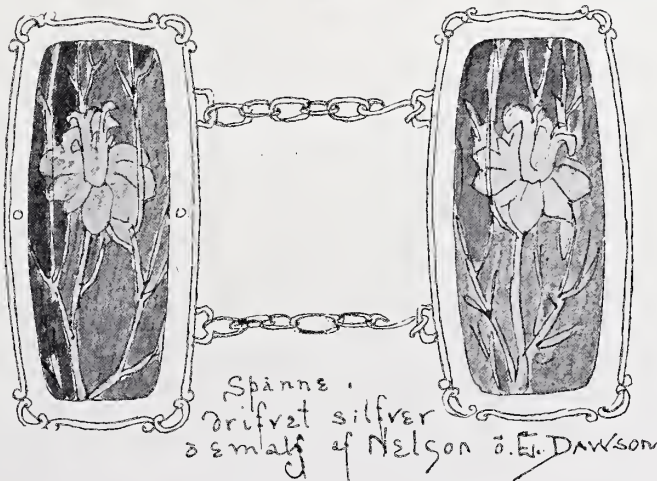 Spänne.
drifvet silfver
o emalj af Nelson o. E. DAWSON